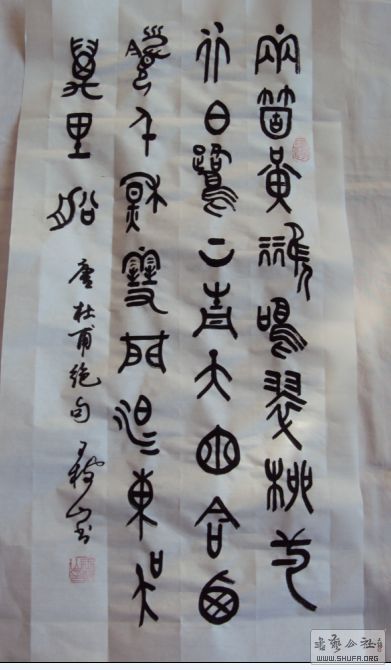 兩箇黃鸝鳴翠柳一
行白鷺上青天窗含西
嶺千秋雪門泊東吳
萬里船
唐杜甫绝句 山书
书艺公社
WWW.SHUFA.ORG